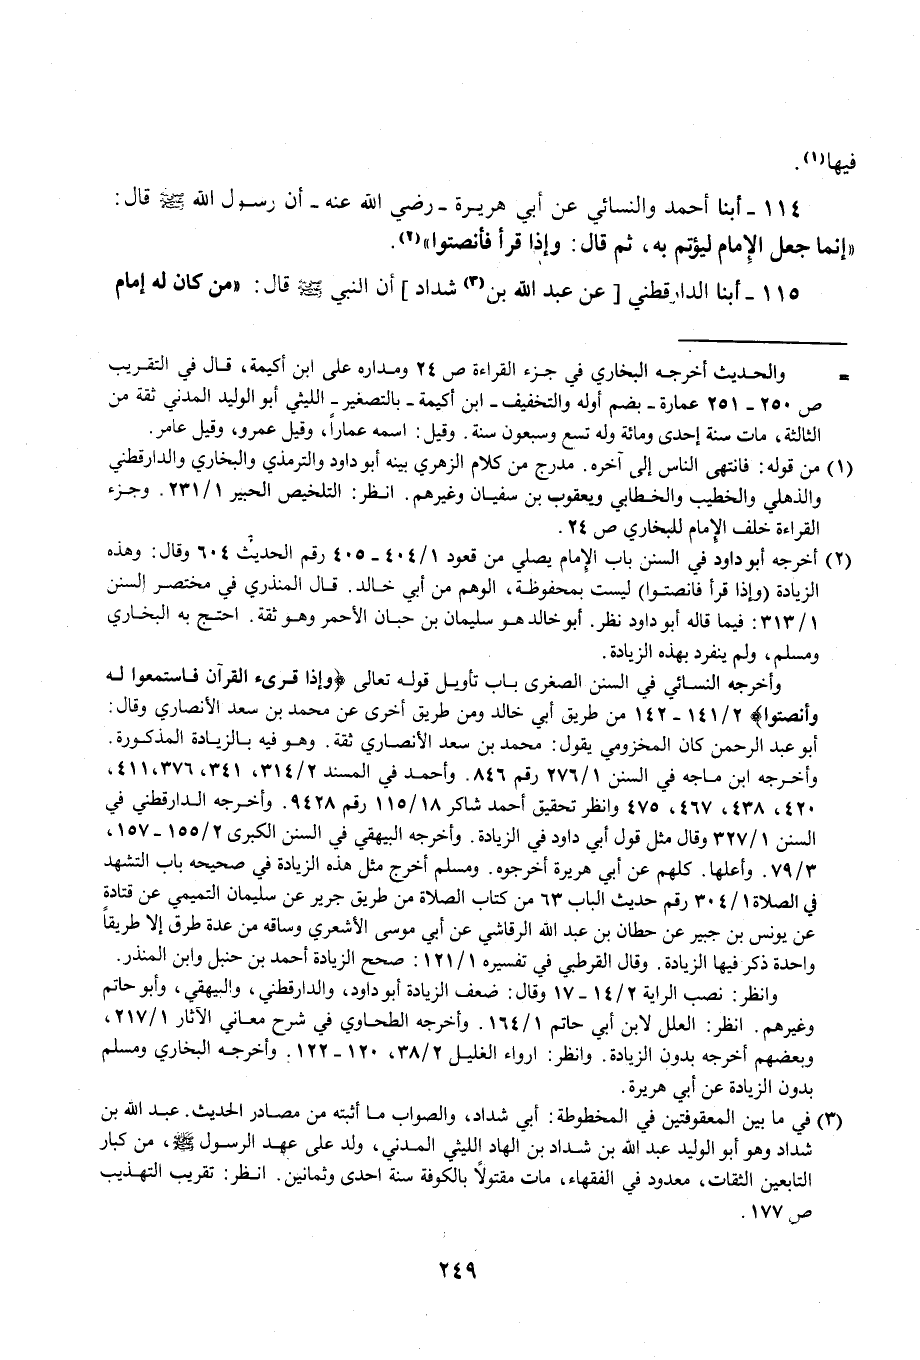 فيها(١).
١١٤ ـ أبنا أحمد والنسائي عن أبي هريرة ـ رضي الله عنه ـ أن رسول الله ﷺ قال:
«إنما جعل الإمام ليؤتم به، ثم قال: وإذا قرأ فأنصتوا»(٢).
١١٥ ـ أبنا الدارقطني [ عن عبد الله بن(٣) شداد ] أن النبي ﷺ قال: «من كان له إمام
= والحديث أخرجه البخاري في جزء القراءة ص ٢٤ ومداره على ابن أكيمة، قال في التقريب
ص ٢٥٠ ـ ٢٥١ عمارة ـ بضم أوله والتخفيف ـ ابن أكيمة ـ بالتصغير ـ الليثي أبو الوليد المدني ثقة من
الثالثة، مات سنة إحدى ومائة وله تسع وسبعون سنة. وقيل: اسمه عماراً، وقيل عمرو، وقيل عامر.
(١) من قوله: فانتهى الناس إلى آخره. مدرج من كلام الزهري بينه أبو داود والترمذي والبخاري والدارقطني
والذهلي والخطيب والخطابي ويعقوب بن سفيان وغيرهم. انظر: التلخيص الحبير ٢٣١/١. وجزء
القراءة خلف الإمام للبخاري ص ٢٤.
(٢) أخرجه أبو داود في السنن باب الإمام يصلي من قعود ٤٠٤/١ ـ ٤٠٥ رقم الحديث ٦٠٤ وقال: وهذه
الزيادة (وإذا قرأ فانصتوا) ليست بمحفوظة، الوهم من أبي خالد. قال المنذري في مختصر السنن
٣١٣/١: فيما قاله أبو داود نظر. أبو خالد هو سليمان بن حبان الأحمر وهو ثقة. احتج به البخاري
ومسلم، ولم ينفرد بهذه الزيادة.
وأخرجه النسائي في السنن الصغرى باب تأويل قوله تعالى ﴿وإذا قرىء القرآن فاستمعوا له
وأنصتوا﴾ ١٤١/٢ ـ ١٤٢ من طريق أبي خالد ومن طريق أخرى عن محمد بن سعد الأنصاري وقال:
أبو عبد الرحمن كان المخزومي يقول: محمد بن سعد الأنصاري ثقة. وهو فيه بالزيادة المذكورة.
وأخرجه ابن ماجه في السنن ٢٧٦/١ رقم ٨٤٦. وأحمد في المسند ٣١٤/٢، ٣٤١، ٣٧٦، ٤١١،
٤٢٠، ٤٣٨، ٤٦٧، ٤٧٥ وانظر تحقيق أحمد شاكر ١١٥/١٨ رقم ٩٤٢٨. وأخرجه الدارقطني في
السنن ٣٢٧/١ وقال مثل قول أبي داود في الزيادة. وأخرجه البيهقي في السنن الكبرى ١٥٥/٢ ـ ١٥٧،
٧٩/٣. وأعلها. كلهم عن أبي هريرة أخرجوه. ومسلم أخرج مثل هذه الزيادة في صحيحه باب التشهد
في الصلاة ٣٠٤/١ رقم حديث الباب ٦٣ من كتاب الصلاة من طريق جرير عن سليمان التميمي عن قتادة
عن يونس بن جبير عن حطان بن عبد الله الرقاشي عن أبي موسى الأشعري وساقه من عدة طرق إلا طريقاً
واحدة ذكر فيها الزيادة. وقال القرطبي في تفسيره ١٢١/١: صحح الزيادة أحمد بن حنبل وابن المنذر.
وانظر: نصب الراية ١٤/٢ ـ ١٧ وقال: ضعف الزيادة أبو داود، والدارقطني، والبيهقي، وأبو حاتم
وغيرهم. انظر: العلل لابن أبي حاتم ١٦٤/١. وأخرجه الطحاوي في شرح معاني الآثار ٢١٧/١،
وبعضهم أخرجه بدون الزيادة. وانظر: ارواء الغليل ٣٨/٢، ١٢٠ ـ ١٢٢. وأخرجه البخاري ومسلم
بدون الزيادة عن أبي هريرة.
(٣) في ما بين المعقوفتين في المخطوطة: أبي شداد، والصواب ما أثبته من مصادر الحديث. عبد الله بن
شداد وهو أبو الوليد عبد الله بن شداد بن الهاد الليثي المدني، ولد على عهد الرسول ﷺ، من كبار
التابعين الثقات، معدود في الفقهاء، مات مقتولاً بالكوفة سنة احدى وثمانين. انظر: تقريب التهذيب
ص ١٧٧.
٢٤٩